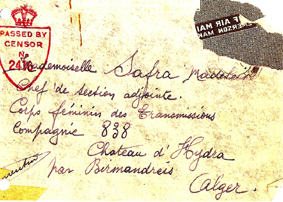 PASSED BY
CENSOR
Mademoiselle Safra
Chef de section adjointe.
Corps féminin des Transmissions
Compagnie 838
Chateau d'Hydra
par Birmandreis
Alger.